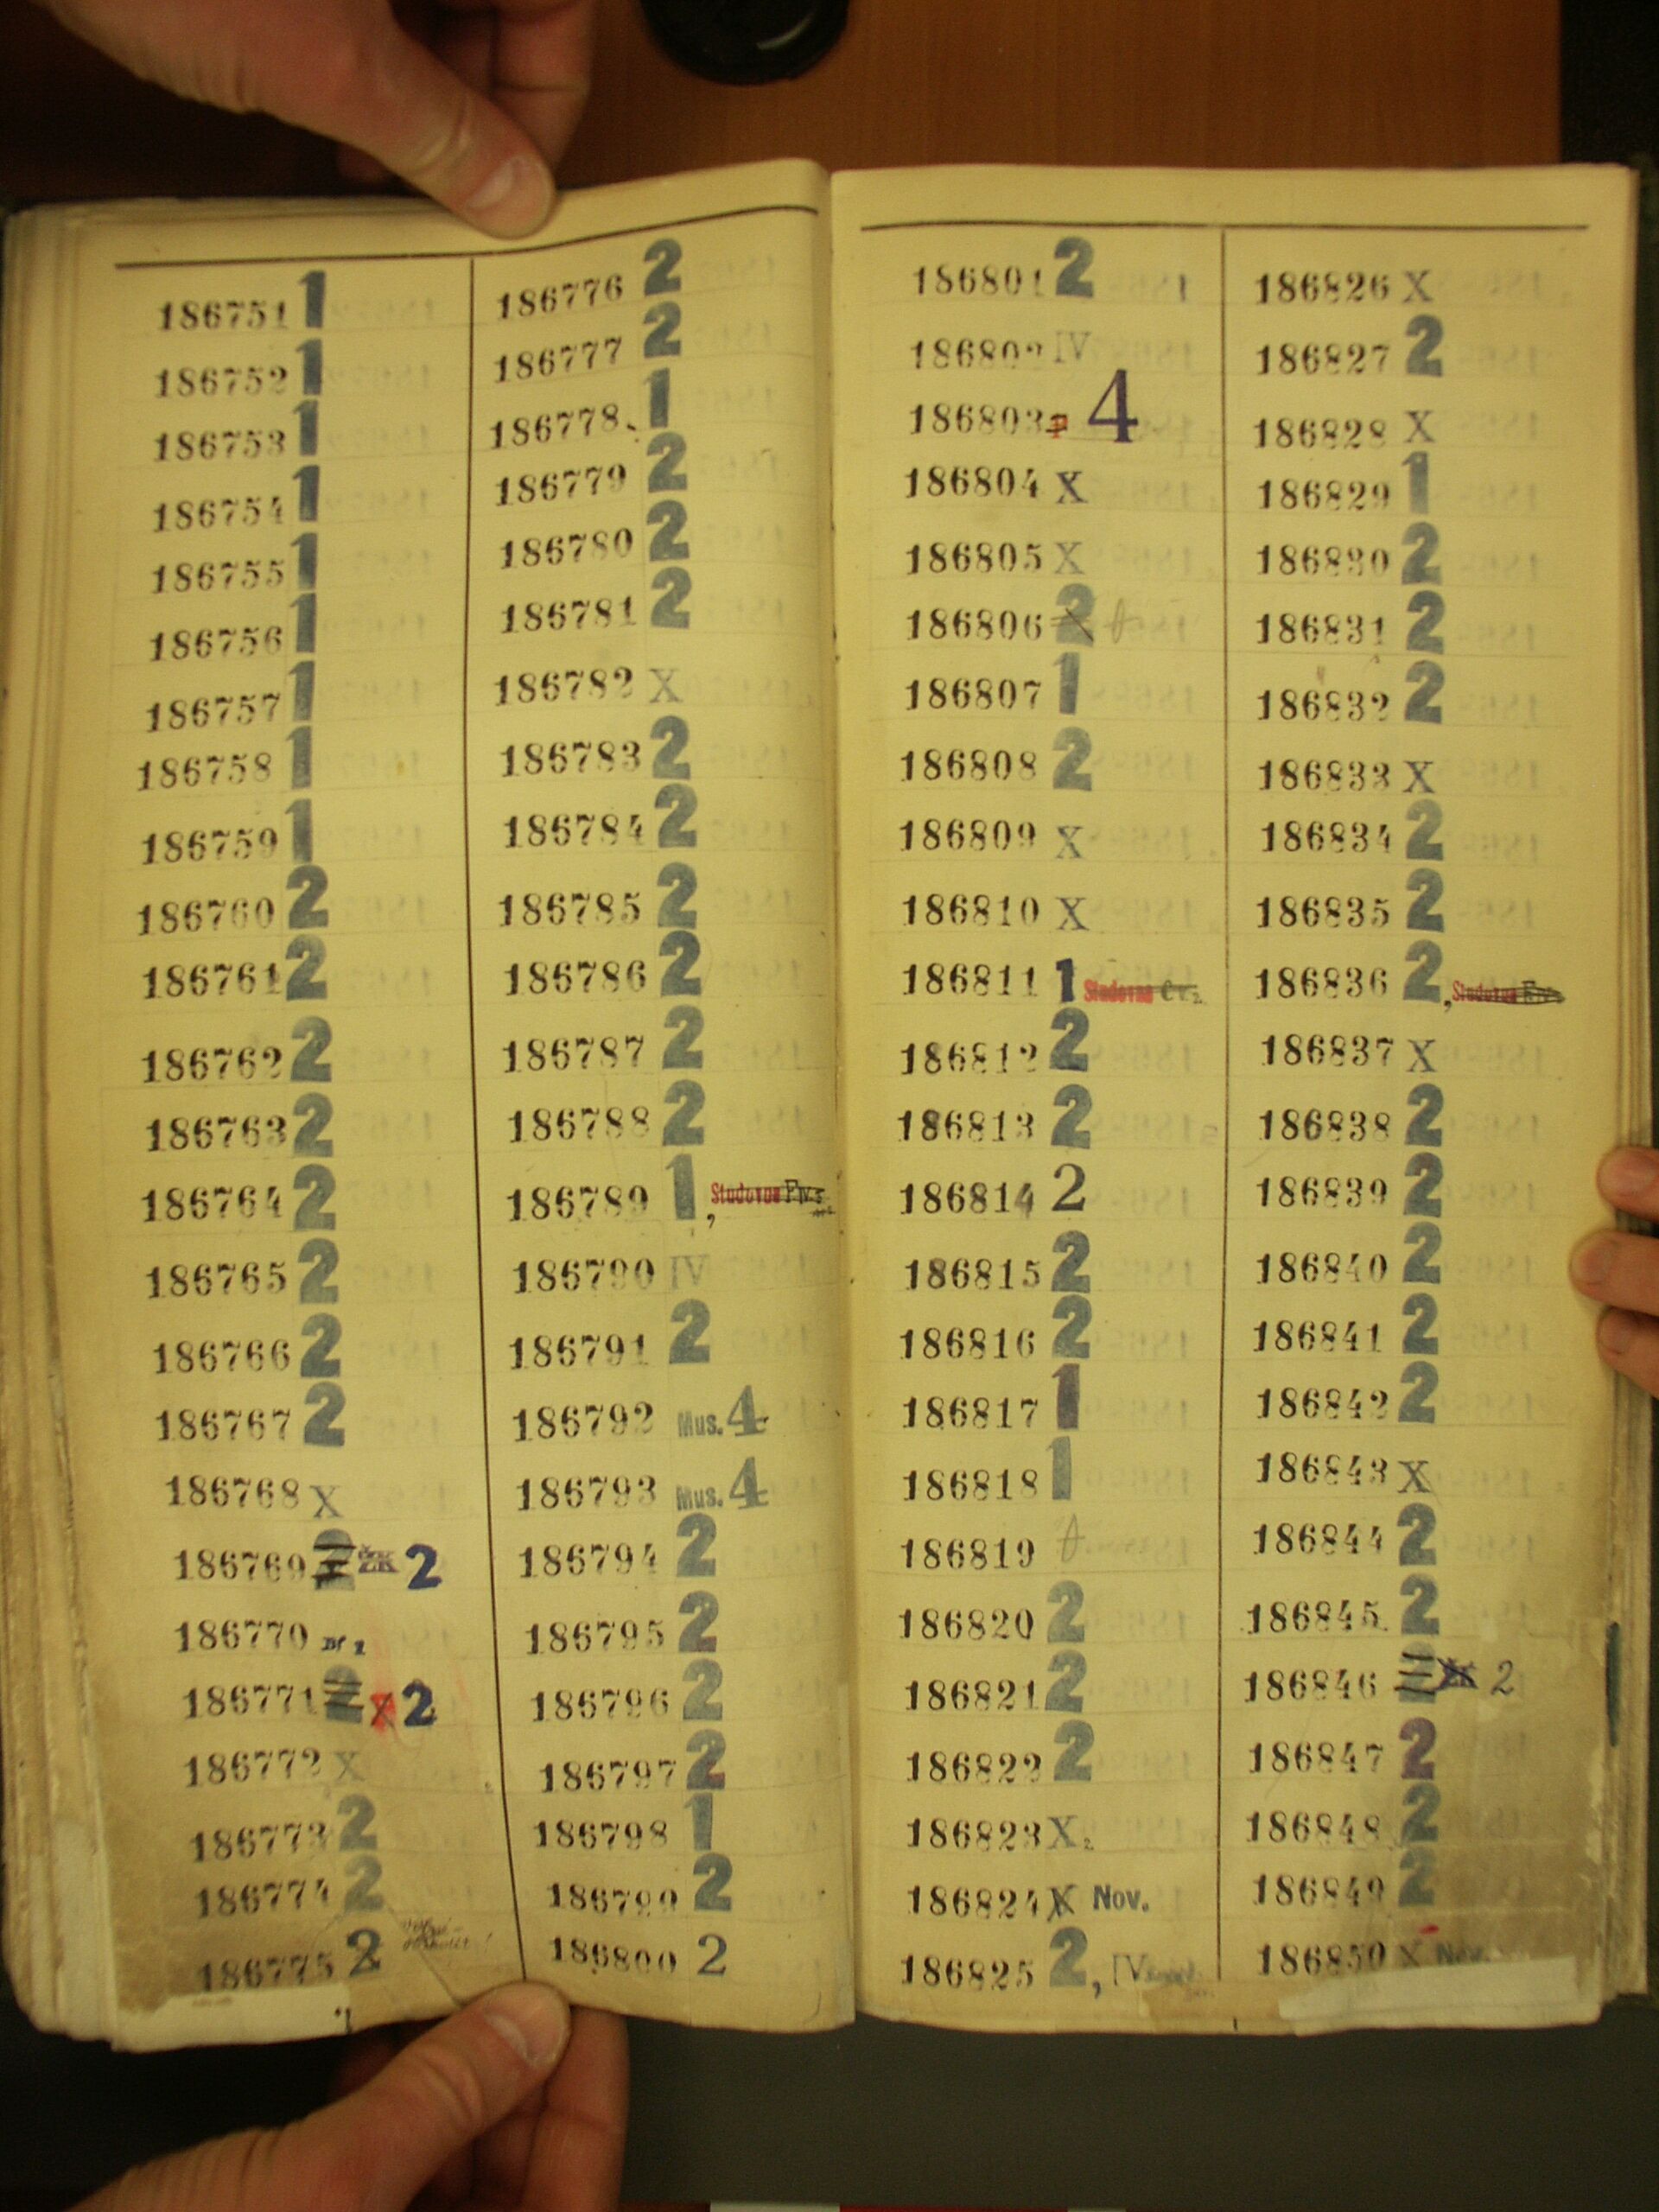 186751 1
186752 1
186753 1
186754 1
186755 1
186756 1
186757 1
186758 1
186759 1
186760 2
186761 2
186762 2
186763 2
186764 2
186765 2
186766 2
186767 2
186768 X
186769 2 ŽK 2
186770
186771 2 X 2
186772 X
186773 2
186774 2
186775 2
186776 2
186777 2
186778 1
186779 2
186780 2
186781 2
186782 X
186783 2
186784 2
186785 2
186786 2
186787 2
186788 2
186789 1, Studovna
186790 IV
186791 2
186792 Mus. 4
186793 Mus. 4
186794 2
186795 2
186796 2
186797 2
186798 1
186799 2
186800 2
186801 2
186802 IV
186803 4
186804 X
186805 X
186806 2
186807 1
186808 2
186809 X
186810 X
186811 1 Studovna
186812 2
186813 2
186814 2
186815 2
186816 2
186817 1
186818 1
186819
186820 2
186821 2
186822 2
186823 X2
186824 X Nov.
186825 2, IV
186826 X
186827 2
186828 X
186829 1
186830 2
186831 2
186832 2
186833 X
186834 2
186835 2
186836 2, Studovna
186837 X
186838 2
186839 2
186840 2
186841 2
186842 2
186843 X
186844 2
186845 2
186846 2 ŽK 2
186847 2
186848 2
186849 2
186850 X Nov.